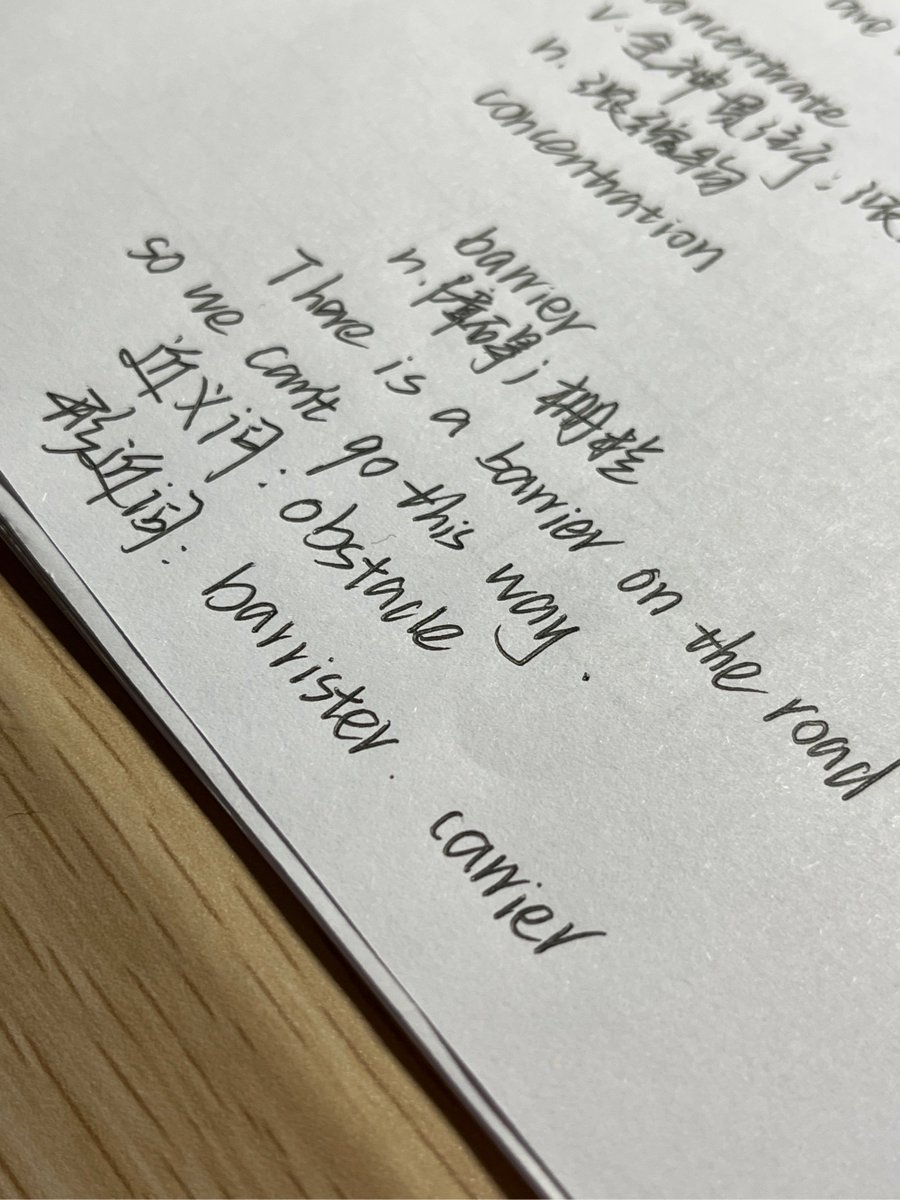 concentrate
v. 全神贯注于; 浓
n. 浓缩物
concentration
barrier
n. 障碍; 栅栏
There is a barrier on the road
so we can't go this way.
近义词: obstacle
形近词: barrister. carrier